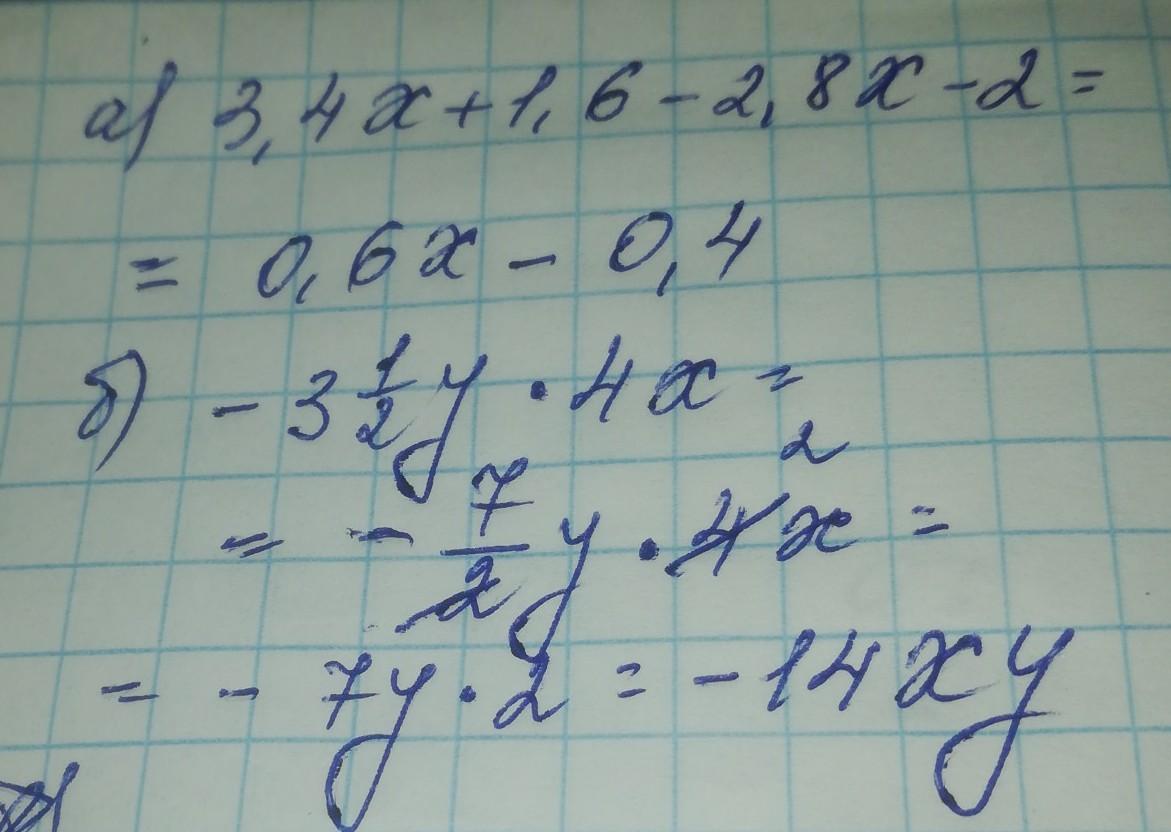 а) 3,4x+1,6-2,8x-2=
= 0,6x - 0,4
б) - 3 1/2 y · 4x =
2
= - 7/2 y · 4x =
= - 7y · 2 = -14xy